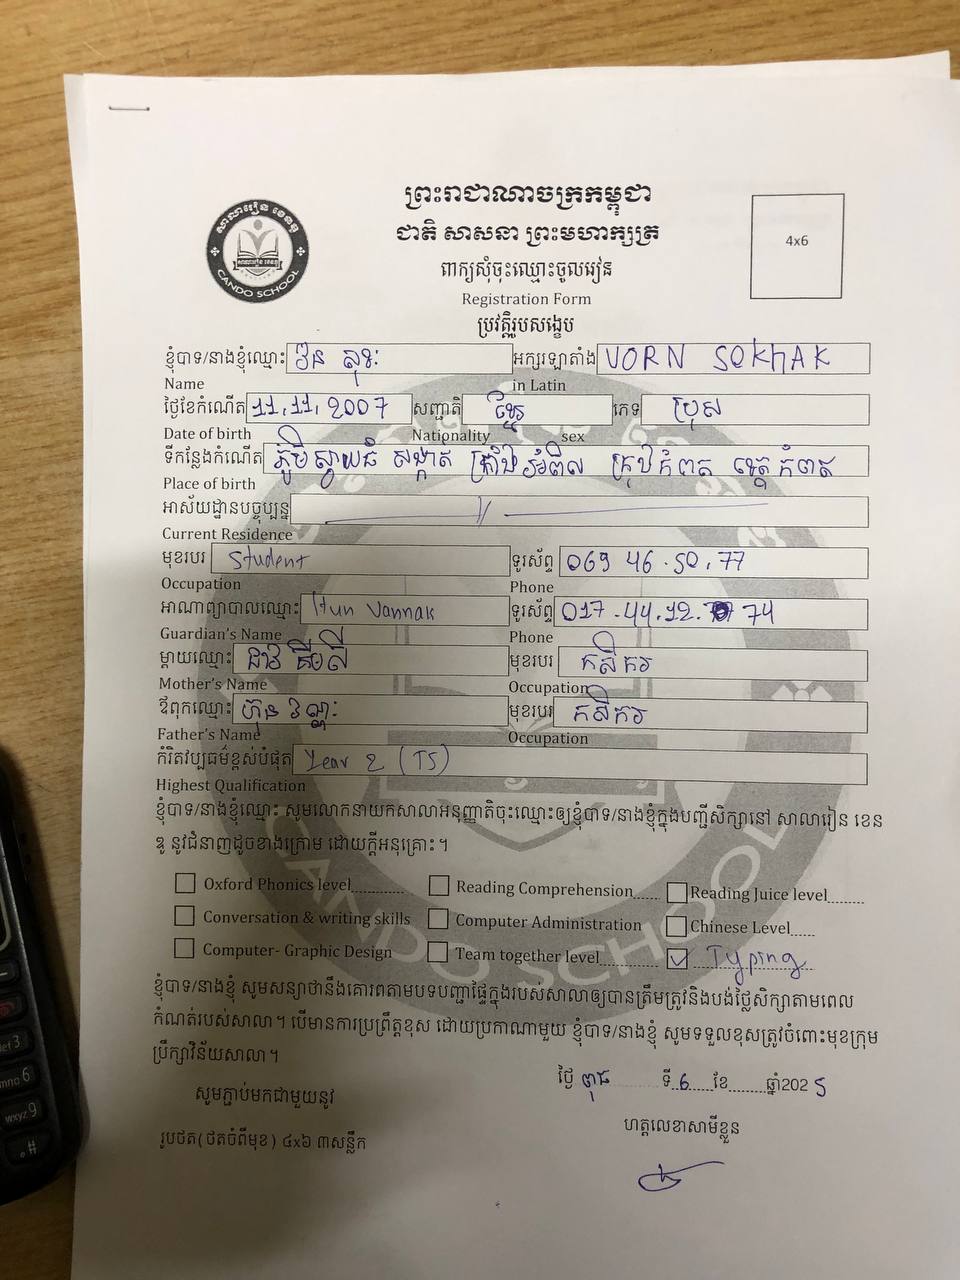 ព្រះរាជាណាចក្រកម្ពុជា
ជាតិ សាសនា ព្រះមហាក្សត្រ
សាលារៀន ខេនឌូ
CANDO SCHOOL
4x6
ពាក្យសុំចុះឈ្មោះចូលរៀន
Registration Form
ប្រវត្តិរូបសង្ខេប
ខ្ញុំបាទ/នាងខ្ញុំឈ្មោះ វ៉ន សុខៈ អក្សរឡាតាំង VORN SOKHAK
Name in Latin
ថ្ងៃខែកំណើត 11.11.2007 សញ្ជាតិ ខ្មែរ ភេទ ប្រុស
Date of birth Nationality sex
ទីកន្លែងកំណើត ភូមិស្វាយធំ សង្កាត់ ក្រាំងអំពិល ក្រុងកំពត ខេត្តកំពត
Place of birth
អាស័យដ្ឋានបច្ចុប្បន្ន
Current Residence
មុខរបរ Student ទូរស័ព្ទ 069 46.50.77
Occupation Phone
អាណាព្យាបាលឈ្មោះ Hun Vannak ទូរស័ព្ទ 017.44.12.74
Guardian's Name Phone
ម្តាយឈ្មោះ មុខរបរ កសិករ
Mother's Name Occupation
ឪពុកឈ្មោះ ហ៊ុន វណ្ណៈ មុខរបរ កសិករ
Father's Name Occupation
កំរិតវប្បធម៌ខ្ពស់បំផុត Year 2 (T5)
Highest Qualification
ខ្ញុំបាទ/នាងខ្ញុំឈ្មោះ សូមលោកនាយកសាលាអនុញ្ញាតិចុះឈ្មោះឲ្យខ្ញុំបាទ/នាងខ្ញុំក្នុងបញ្ជីសិក្សានៅ សាលារៀន ខេន
ឌូ នូវជំនាញដូចខាងក្រោម ដោយក្តីអនុគ្រោះ។
Oxford Phonics level........... Reading Comprehension....... Reading Juice level........
Conversation & writing skills Computer Administration Chinese Level.....
Computer- Graphic Design Team together level........ Typing
ខ្ញុំបាទ/នាងខ្ញុំ សូមសន្យាថានឹងគោរពតាមបទបញ្ជាផ្ទៃក្នុងរបស់សាលាឲ្យបានត្រឹមត្រូវនិងបង់ថ្លៃសិក្សាតាមពេល
កំណត់របស់សាលា។ បើមានការប្រព្រឹត្តខុស ដោយប្រកាណាមួយ ខ្ញុំបាទ/នាងខ្ញុំ សូមទទួលខុសត្រូវចំពោះមុខក្រុម
ប្រឹក្សាវិន័យសាលា។
ថ្ងៃ ពុធ ទី 6 ខែ........ ឆ្នាំ2025
សូមភ្ជាប់មកជាមួយនូវ
ហត្ថលេខាសាមីខ្លួន
រូបថត(ថតចំពីមុខ) ៤x៦ ៣សន្លឹក